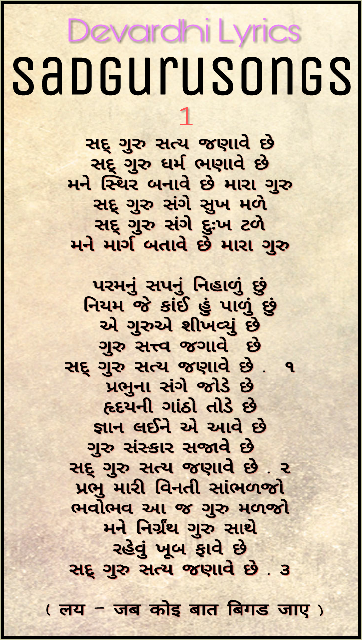 Devardhi Lyrics
SADGURUSONGS
1
સદ્ ગુરુ સત્ય જણાવે છે
સદ્ ગુરુ ધર્મ ભણાવે છે
મને સ્થિર બનાવે છે મારા ગુરુ
સદ્ ગુરુ સંગે સુખ મળે
સદ્ ગુરુ સંગે દુઃખ ટળે
મને માર્ગ બતાવે છે મારા ગુરુ
પરમનું સપનું નિહાળું છું
નિયમ જે કાંઈ હું પાળું છું
એ ગુરુએ શીખવ્યું છે
ગુરુ સત્ત્વ જગાવે છે
સદ્ ગુરુ સત્ય જણાવે છે . ૧
પ્રભુના સંગે જોડે છે
હૃદયની ગાંઠો તોડે છે
જ્ઞાન લઈને એ આવે છે
ગુરુ સંસ્કાર સજાવે છે
સદ્ ગુરુ સત્ય જણાવે છે . ૨
પ્રભુ મારી વિનતી સાંભળજો
ભવોભવ આ જ ગુરુ મળજો
મને નિર્ગ્રંથ ગુરુ સાથે
રહેવું ખૂબ ફાવે છે
સદ્ ગુરુ સત્ય જણાવે છે . ૩
( લય - જબ કોઇ બાત બિગડ જાએ )